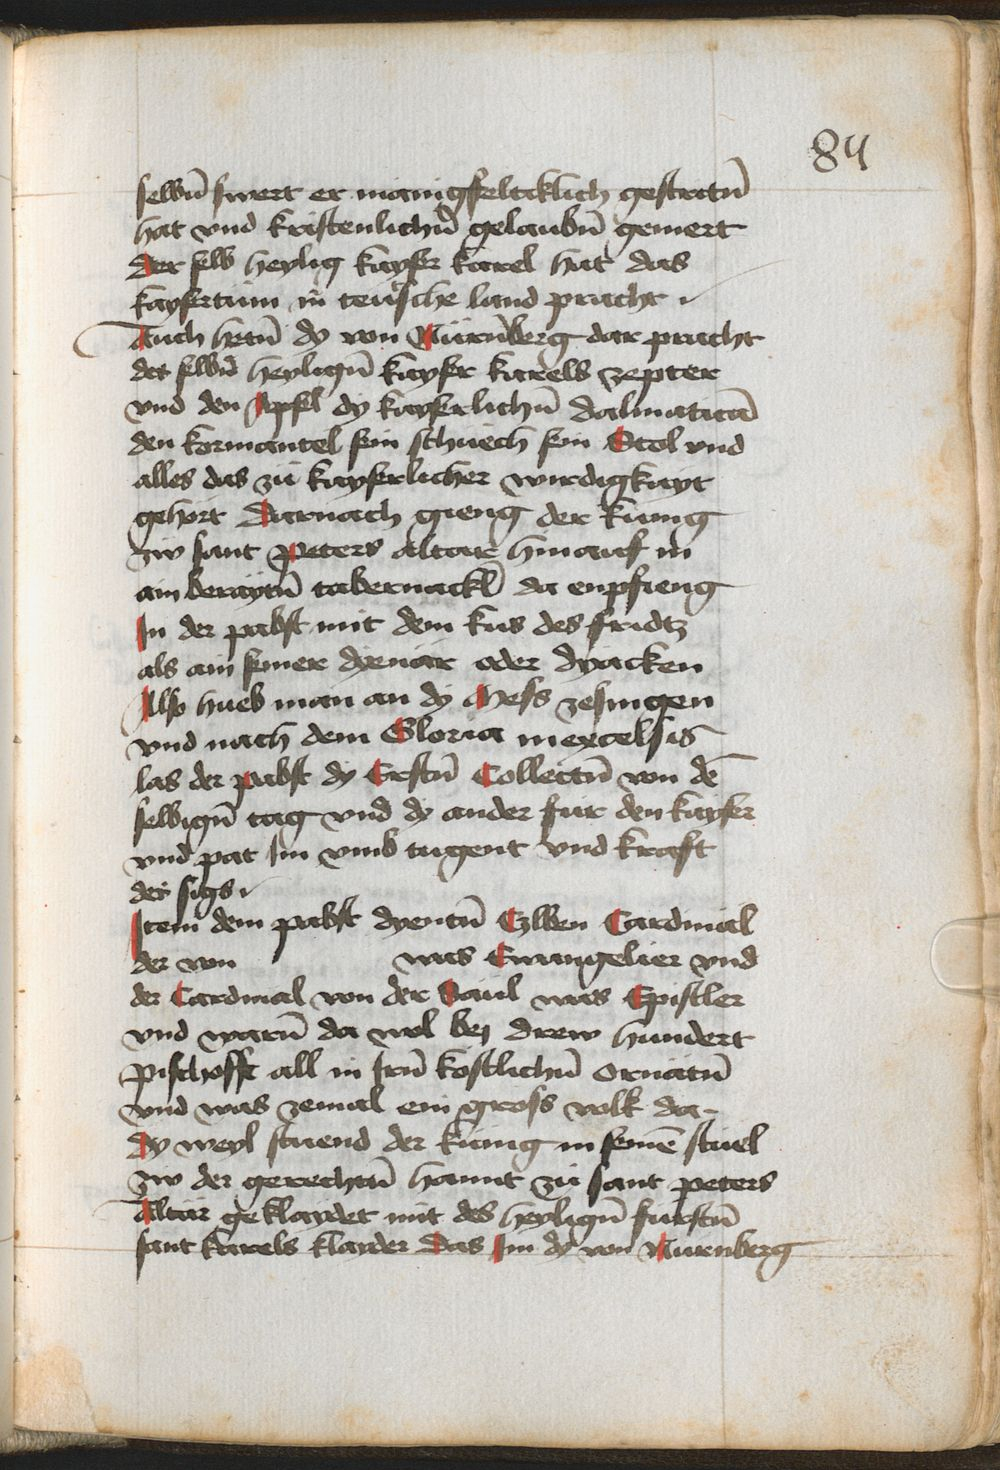 84
selbn̄ swert er manigfeltiklich gestritn̄
hat vnd kristenlichn̄ gelaubn̄ gemert
der selb heylig kayser karel hat das
kaysertum in teusche land pracht
Auch hetn̄ dy von Nürnberg dar pracht
des selbn̄ heylign̄ kayser karels zepter
vnd den Apfel dy kayserlichn̄ dalmaticā
den kormantel sein schuech sein Stol vnd
alles das zu kayserlicher wirdigkayt
gehört Darnach gieng der kunig
zw sant Peters altar hinauf in
ain beraytn̄ tabernackl da enpfieng
In der pabst mit dem kus des fridtz
als ain seiner dyenär oder dyacken
Also hueb man an dy Mess zesingen
vnd nach dem Gloria in excelsis
las der pabst dy Erstn̄ Collectn̄ von dē
selbign̄ tag vnd dy ander fur den kayser
vnd pat Im vmb tugent vnd kraft
des sigs
Item dem pabst dyentn̄ Czwen Cardinäl
der von was Ewangelier vnd
der Cardinal von der Saul was Epistler
vnd warn̄ da wol bej drew hundert
pischofft all in Irn̄ kostlichn̄ Ornätn̄
vnd was zemal ein gross volk da
dy weyl stuend der kunig in seinē stuel
zw der gerechtn̄ hannt zu sant peters
Altär geklaydet mit des heylign̄ furstn̄
sant karels klayder Das Im dy von Nürnberg